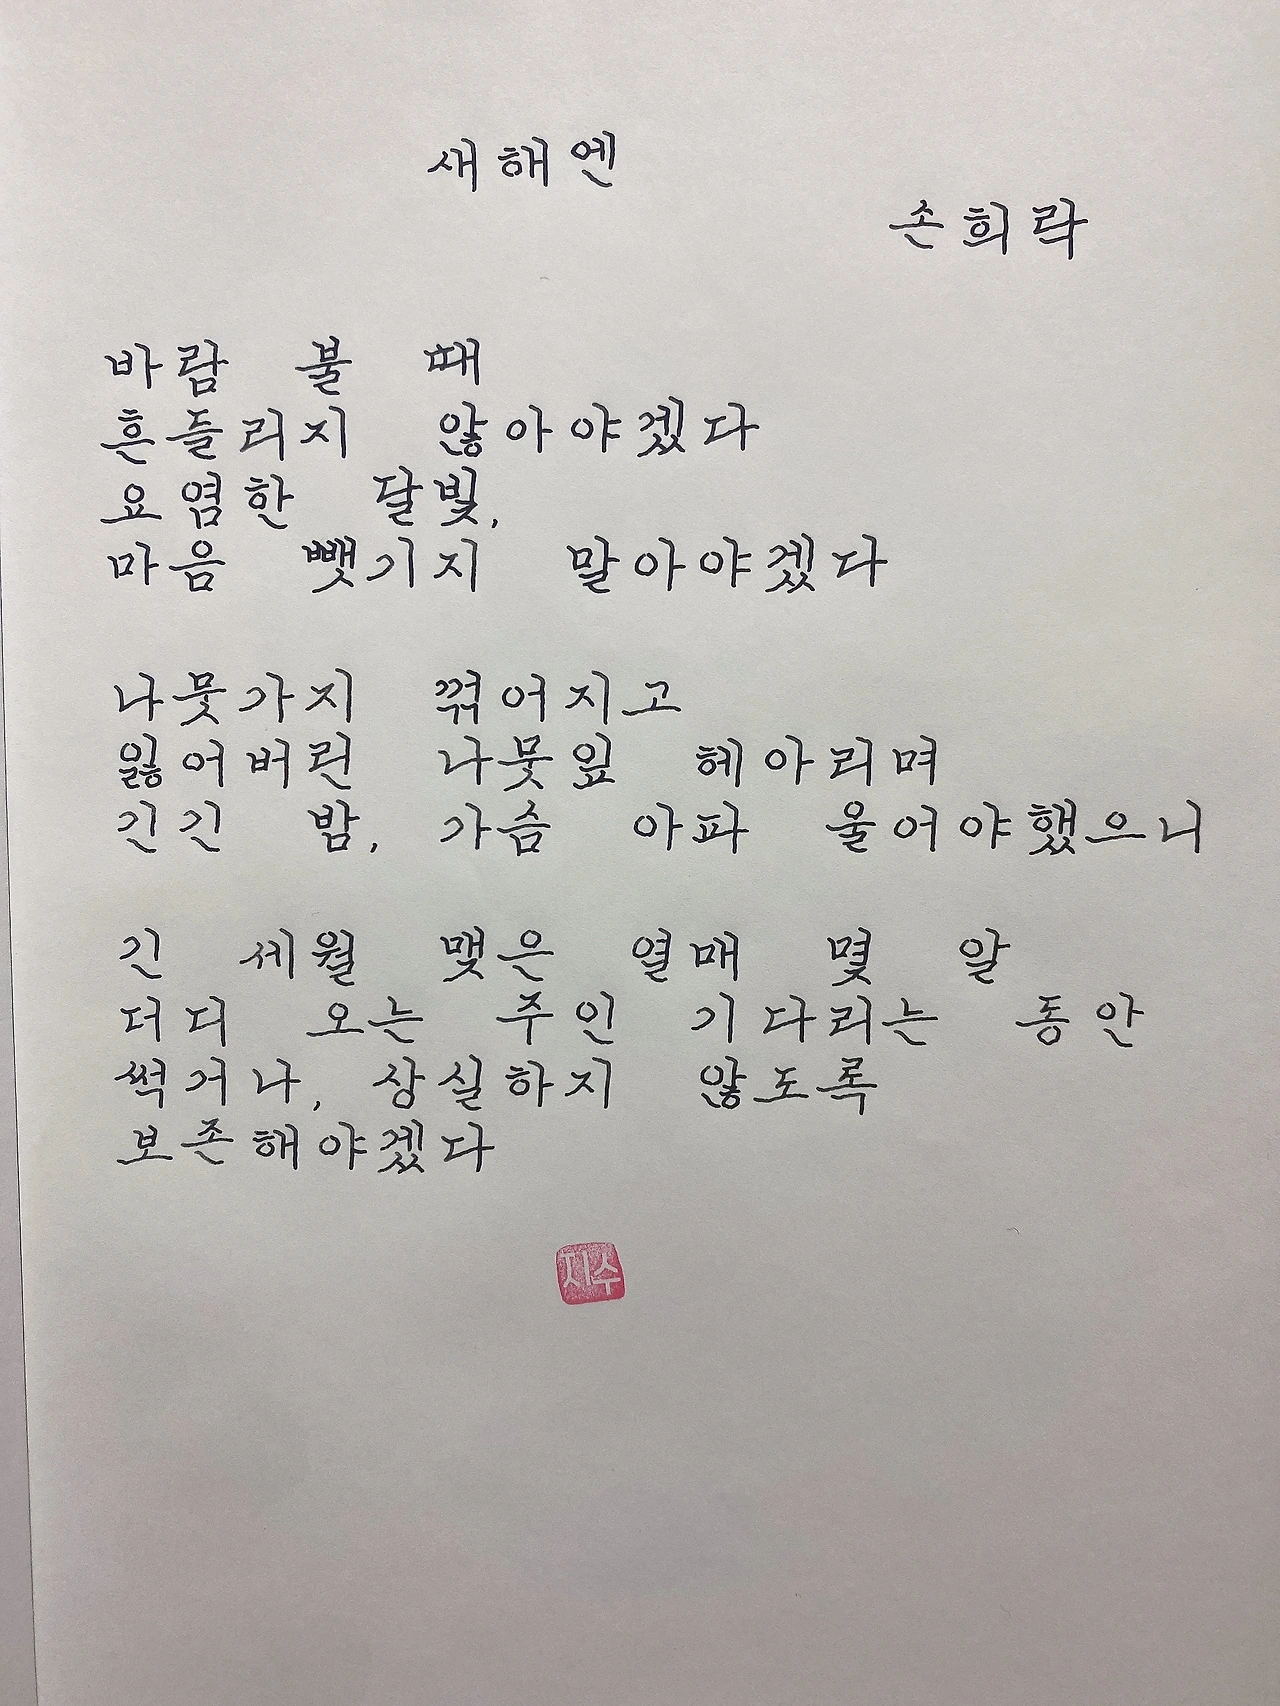 새해엔
손희락
바람 불 때
흔들리지 않아야겠다
요염한 달빛,
마음 뺏기지 말아야겠다
나뭇가지 꺾어지고
잃어버린 나뭇잎 헤아리며
긴긴 밤, 가슴 아파 울어야했으니
긴 세월 맺은 열매 몇 알
더디 오는 주인 기다리는 동안
썩거나, 상실하지 않도록
보존해야겠다
지수